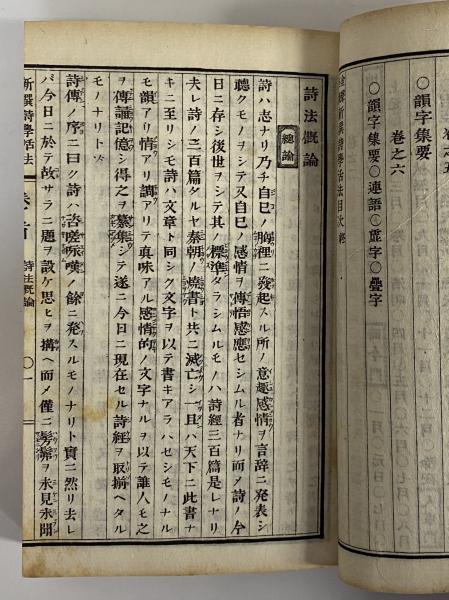 卷之五
○韻字集要
卷之六
○韻字集要○連語○虛字○疊字
新撰詩學活法目次終
詩法概論
總論
詩ハ志ナリ乃チ自己ノ胸裡ニ發起スル所ノ意趣感情ヲ言辭ニ發表シ
聽クモノヲシテ又自己ノ感情ヲ傳悟感應セシムル者ナリ而メ詩ノ今
日ニ存シ後世ヲシテ其ノ標準タラシムルモノハ詩經三百篇是レナリ
夫レ詩ノ三百篇タルヤ秦朝ノ燒書ト共ニ滅亡シ一旦ハ天下ニ此書ナ
キニ至リシモ詩ハ文章ト同シク文字ヲ以テ書キアラハセシモノナル
モ韻アリ情アリ調アリテ眞味アル感情的ノ文字ナルヲ以テ誰人モ之
ヲ傳誦記億シ得之ヲ纂集シテ遂ニ今日ニ現在セル詩經ヲ取揃ヘタル
モノナリトス
詩傳ノ序ニ曰ク詩ハ咨嗟咏嘆ノ餘ニ發スルモノナリト實ニ然リ去レ
バ今日ニ於テ故サラニ題ヲ設ケ思ヒヲ搆ヘ而メ僅ニ髣髴ヲ永見永聞
新撰詩學活法
卷首
詩法概論
○一